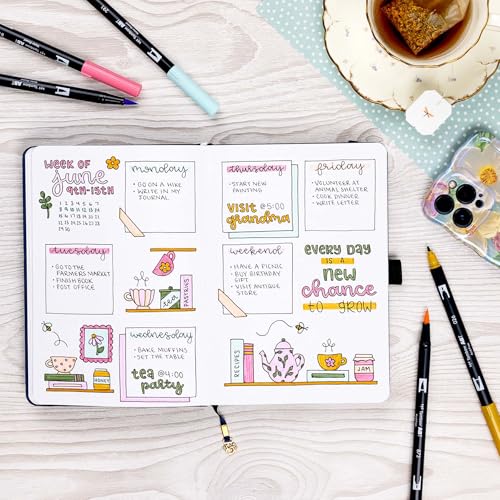 WEEK OF
june
9TH-15TH
monday
• GO ON A HIKE
• WRITE IN MY
JOURNAL
tuesday
• GO TO THE
FARMERS MARKET
• FINISH BOOK
• POST OFFICE
tea
PASTRIES
wednesday
• BAKE MUFFINS
• SET THE TABLE
tea @4:00
party
HONEY
thursday
• START NEW
PAINTING
VISIT @5:00
grandma
friday
• VOLUNTEER AT
ANIMAL SHELTER
• COOK DINNER
• WRITE LETTER
weekend
• HAVE A PICNIC
• BUY BIRTHDAY
GIFT
• VISIT ANTIQUE
STORE
EVERY DAY
IS A
NEW
chance
to GROW
RECIPES
JAM